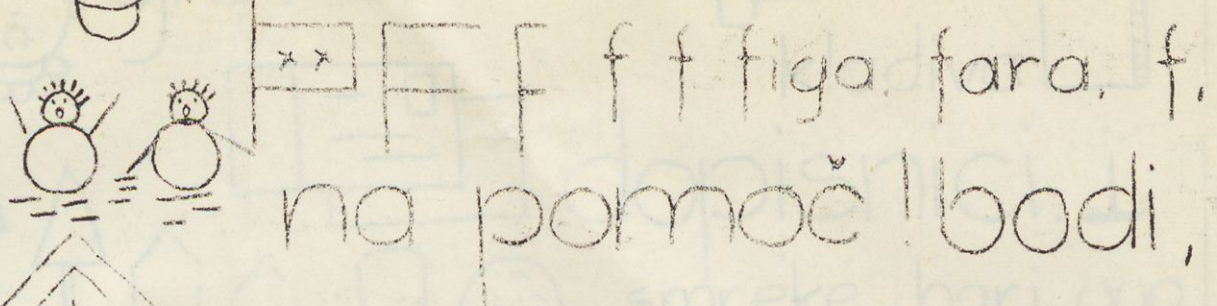 F F f f figa. fara. f.
na pomoč! bodi,